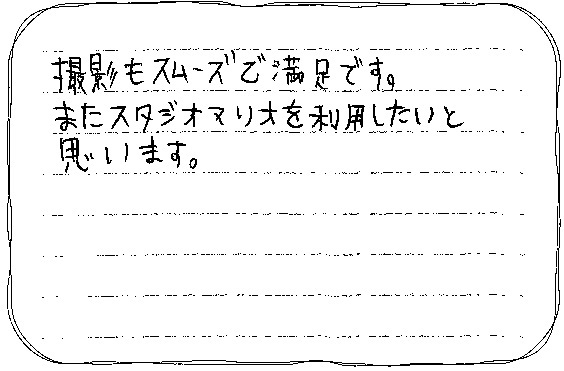 撮影もスムーズで満足です。
またスタジオマリオを利用したいと
思います。